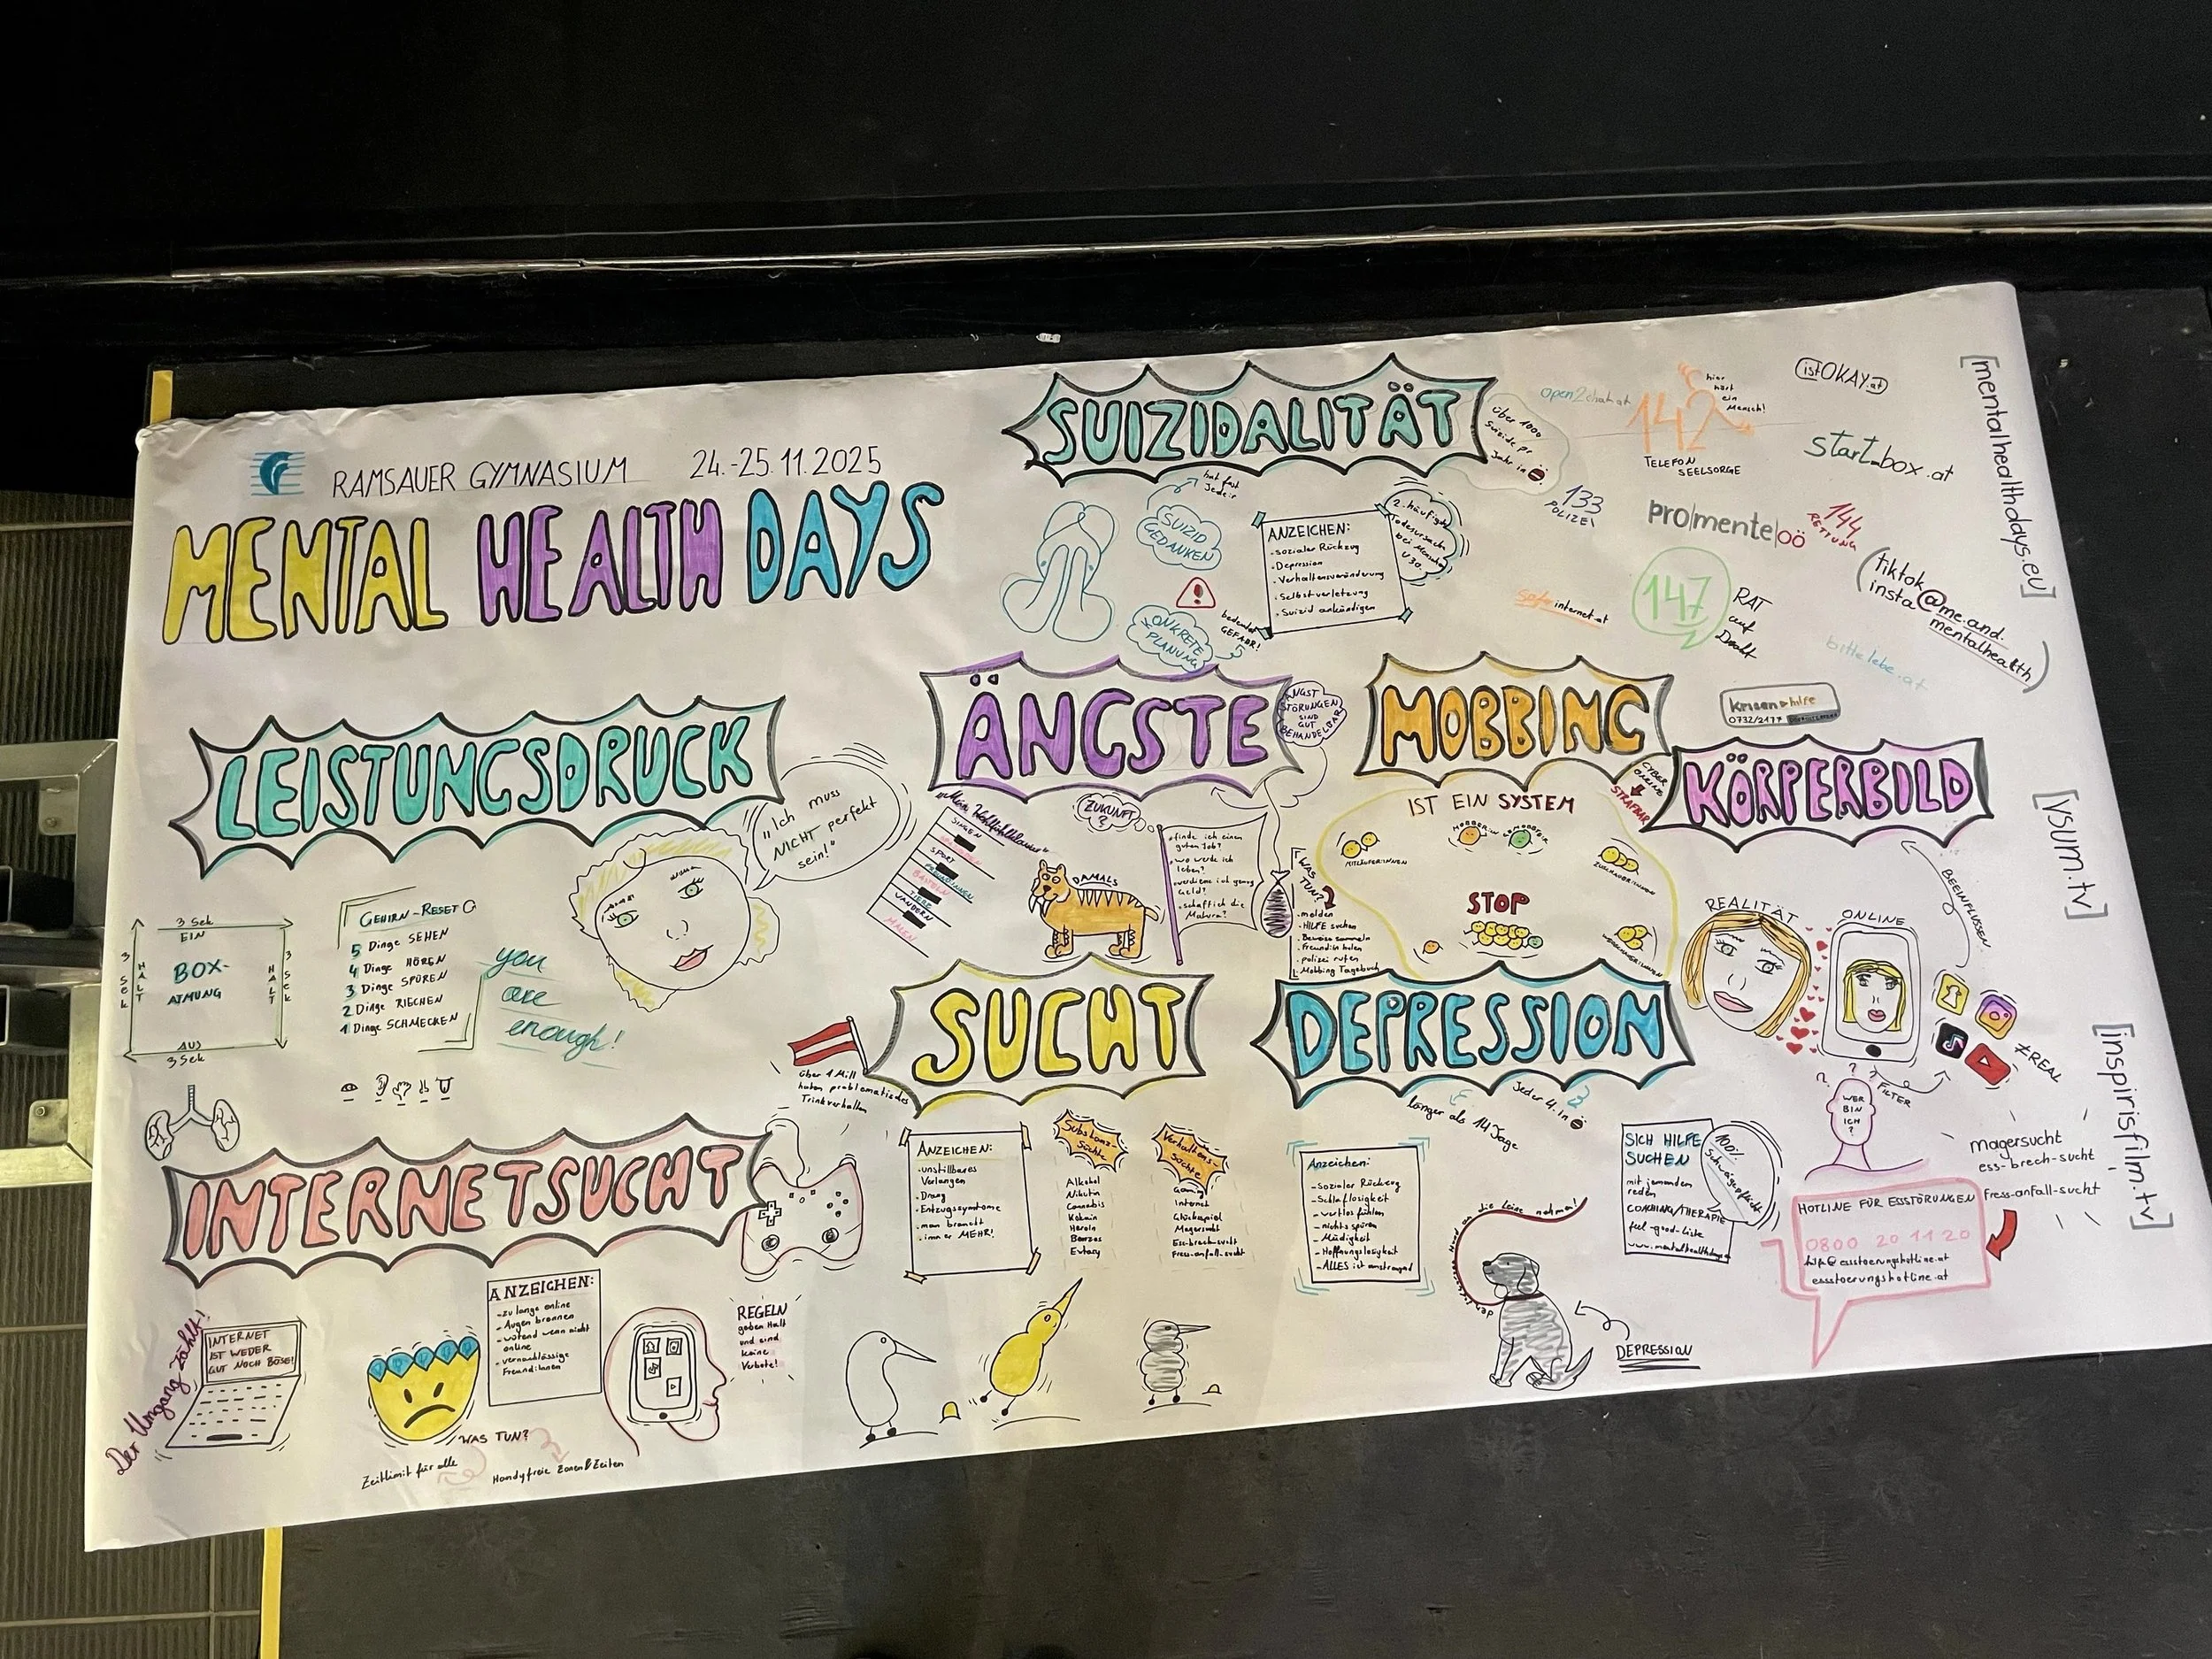 RAMSAUER GYMNASIUM 24.-25.11.2025
MENTAL HEALTH DAYS
SUIZIDALITÄT
über 1000
Suizide pr.
Jahr in
hat fast
Jede:r
SUIZID
GEDANKEN
KONKRETE
PLANUNG
bedeutet
GEFAHR!
ANZEICHEN:
-sozialer Rückzug
-Depression
-Verhaltensveränderung
-Selbstverletzung
-Suizid ankündigen
2. häufigste
Todesursach
bei Menschen
U30.
open2chat.at
142
hier
hört
ein
Mensch!
TELEFON
SEELSORGE
istOKAY.at
start-box.at
133
POLIZEI
pro|mente|oö
144
RETTUNG
safeinternet.at
147
RAT
auf
Draht
bittelebe.at
(tiktok@me.and.
insta mentalhealth)
krisenhilfe
0732/2177
[mentalhealthdays.eu]
[vsum.tv]
[inspirisfilm.tv]
LEISTUNGSDRUCK
"Ich muss
NICHT perfekt
sein!"
3 Sek
EIN
3 SEK
HALT
BOX-
ATMUNG
HALT
3 SEK
AUS
3 Sek
GEHIRN-RESET
5 Dinge SEHEN
4 Dinge HÖREN
3 Dinge SPÜREN
2 Dinge RIECHEN
1 Dinge SCHMECKEN
you
are
enough!
ÄNGSTE
ANGST
STÖRUNGEN
SIND
GUT
BEHANDELBAR
SINGEN
SPORT
BASTELN
WANDERN
MALEN
ZUKUNFT
?
DAMALS
-finde ich einen
guten Job?
-wo werde ich
leben?
-verdiene ich genug
Geld?
-schaff ich die
Matura?
MOBBING
IST EIN SYSTEM
CYBER
STRAFBAR
MITLÄUFER:INNEN
ZUSCHAUER:INNEN
STOP
WAS TUN?
-melden
-HILFE suchen
-Beweise sammeln
-Freund:in holen
-polizei rufen
-Mobbing Tagebuch
KÖRPERBILD
BEEINFLUSSEN
REALITÄT
ONLINE
≠REAL
FILTER
WER
BIN
ICH
?
magersucht
ess-brech-sucht
fress-anfall-sucht
HOTLINE FÜR ESSTÖRUNGEN
0800 20 11 20
hilfe@essstoerungshotline.at
essstoerungshotline.at
SUCHT
über 1 Mill
haben problematisches
Trinkverhalten
ANZEICHEN:
-unstillbares
Verlangen
-Drang
-Entzugssymptome
-man braucht
immer MEHR!
Substanz-
Süchte
Alkohol
Nikotin
Cannabis
Kokain
Heroin
Benzos
Extasy
Verhaltens-
Süchte
Gaming
Internet
Glücksspiel
Magersucht
Ess-brech-sucht
Fress-anfall-sucht
DEPRESSION
länger als 14 Tage
Jeder 4. in
Anzeichen:
-Sozialer Rückzug
-Schlaflosigkeit
-wertlos fühlen
-nichts spüren
-Müdigkeit
-Hoffnungslosigkeit
-ALLES ist anstrengend
SICH HILFE
SUCHEN
mit jemanden
reden
COACHING/THERAPIE
feel-good-Liste
100%
Schweigepflicht
den schwarzen Hund an die Leine nehmen!
DEPRESSION
INTERNETSUCHT
Der Umgang zählt!
INTERNET
IST WEDER
GUT NOCH BÖSE!
ANZEICHEN:
-zu lange online
-Augen brennen
-wütend wenn nicht
online
-vernachlässige
Freund:innen
REGELN
geben Halt
und sind
keine
Verbote!
WAS TUN?
Zeitlimit für alle
Handyfreie Zonen & Zeiten